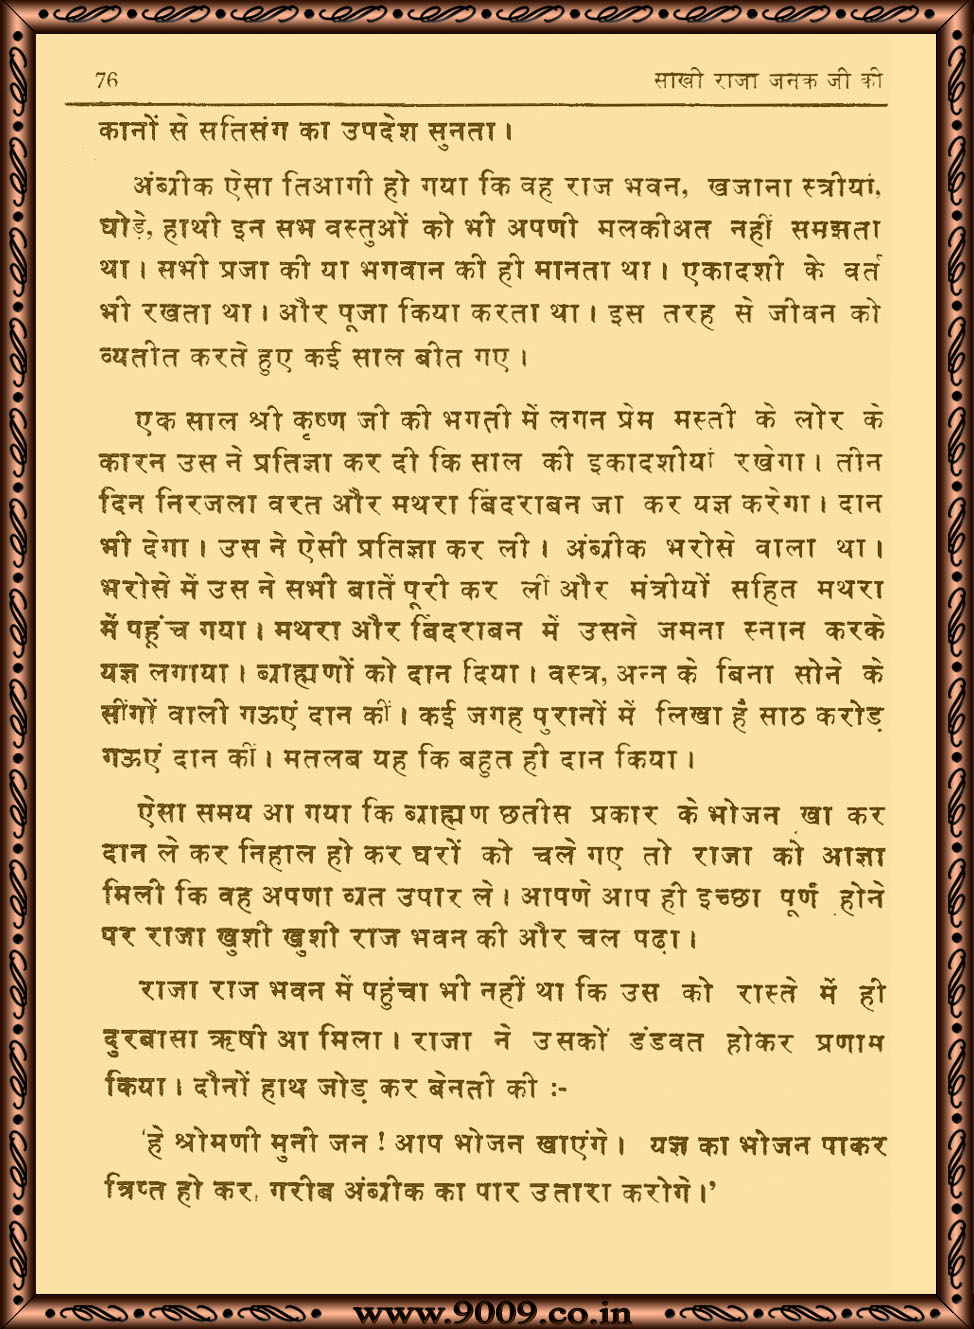 76 साखी राजा जनक जी की
कानों से सतिसंग का उपदेश सुनता।
अंब्रीक ऐसा तिआगी हो गया कि वह राज भवन, खजाना स्त्रीयां,
घोड़े, हाथी इन सभ वस्तुओं को भी अपणी मलकीअत नहीं समझता
था। सभी प्रजा की या भगवान की ही मानता था। एकादशी के वर्त
भी रखता था। और पूजा किया करता था। इस तरह से जीवन को
व्यतीत करते हुए कई साल बीत गए।
एक साल श्री कृष्ण जी की भगती में लगन प्रेम मस्ती के लोर के
कारन उस ने प्रतिज्ञा कर दी कि साल की इकादशीयां रखेगा। तीन
दिन निरजला वरत और मथरा बिंदराबन जा कर यज्ञ करेगा। दान
भी देगा। उस ने ऐसी प्रतिज्ञा कर ली। अंब्रीक भरोसे वाला था।
भरोसे में उस ने सभी बातें पूरी कर लीं और मंत्रीयों सहित मथरा
में पहूंच गया। मथरा और बिंदराबन में उसने जमना स्नान करके
यज्ञ लगाया। ब्राह्मणों को दान दिया। वस्त्र, अन्न के बिना सोने के
सींगों वाली गऊएं दान कीं। कई जगह पुरानों में लिखा हैं साठ करोड़
गऊएं दान कीं। मतलब यह कि बहुत ही दान किया।
ऐसा समय आ गया कि ब्राह्मण छतीस प्रकार के भोजन खा कर
दान ले कर निहाल हो कर घरों को चले गए तो राजा को आज्ञा
मिली कि वह अपणा व्रत उपार ले। आपणे आप ही इच्छा पूर्णं होने
पर राजा खुशी खुशी राज भवन की और चल पढ़ा।
राजा राज भवन में पहुंचा भी नहीं था कि उस को रास्ते में ही
दुरबासा ऋषी आ मिला। राजा ने उसकों डंडवत होकर प्रणाम
किया। दौनों हाथ जोड़ कर बेनती की :-
'हे श्रोमणी मुनी जन ! आप भोजन खाएंगे। यज्ञ का भोजन पाकर
त्रिप्त हो कर, गरीब अंब्रीक का पार उतारा करोगे।'
www.9009.co.in